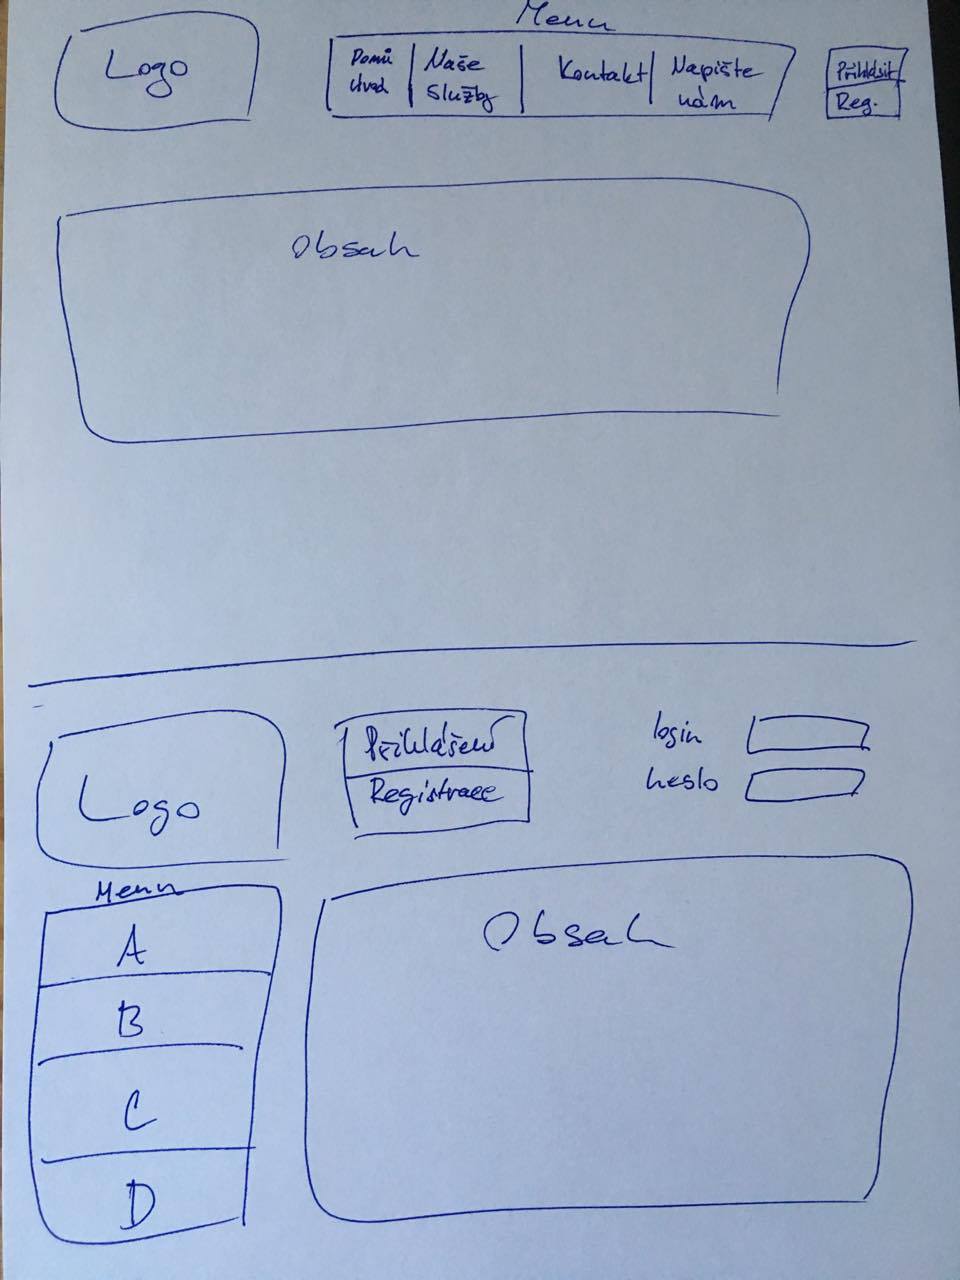 Menu
Logo
Domů
úvod
Naše
služby
Kontakt
Napište
nám
Přihlásit
Reg.
Obsah
Logo
Přihlášení
Registrace
login
heslo
Menu
A
B
C
D
Obsah